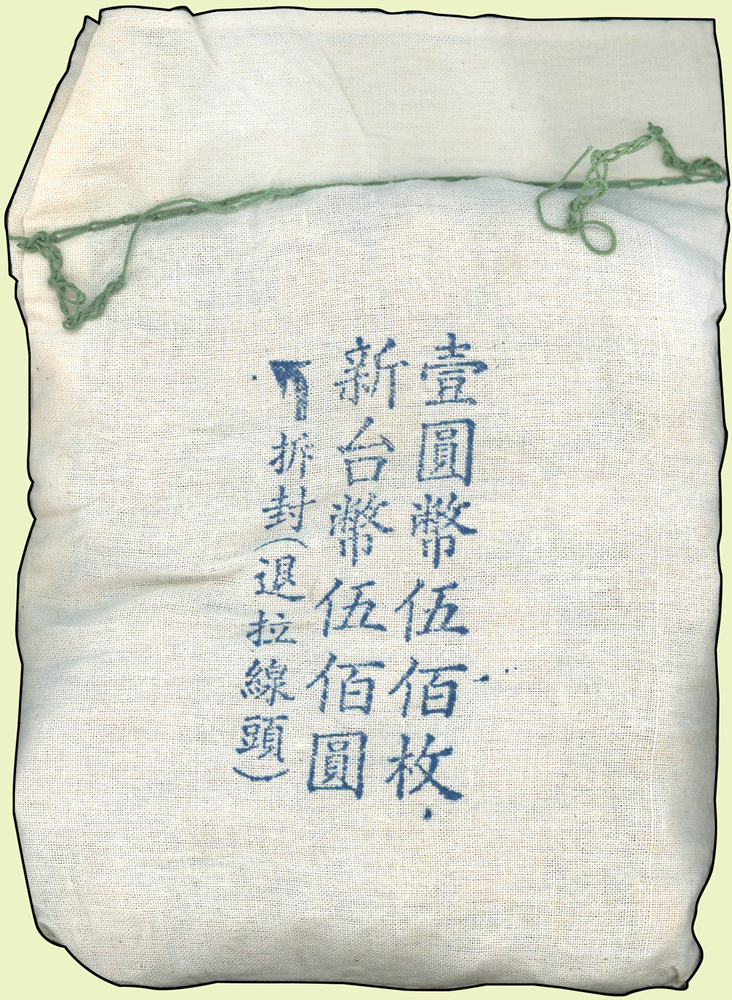 壹圓幣伍佰枚
新台幣伍佰圓
拆封(退拉線頭)